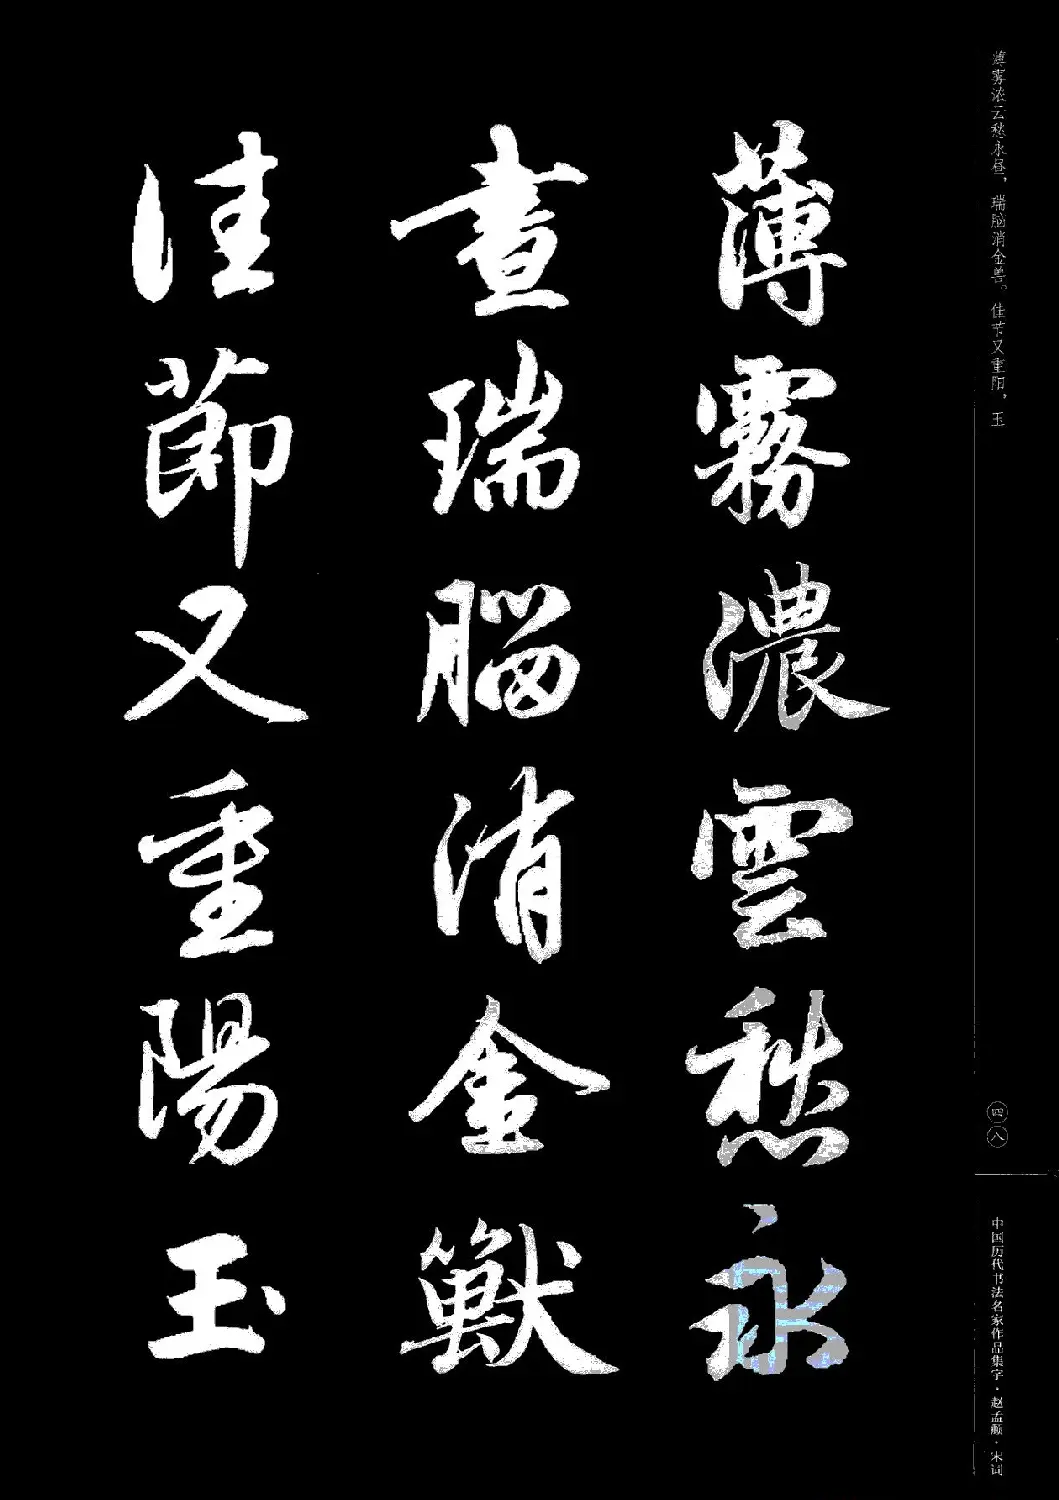 薄雾浓云愁永昼，瑞脑消金兽。佳节又重阳，玉
薄霧濃雲愁永
晝瑞腦消金獸
佳節又重陽玉
四八
中国历代书法名家作品集字·赵孟頫·宋词